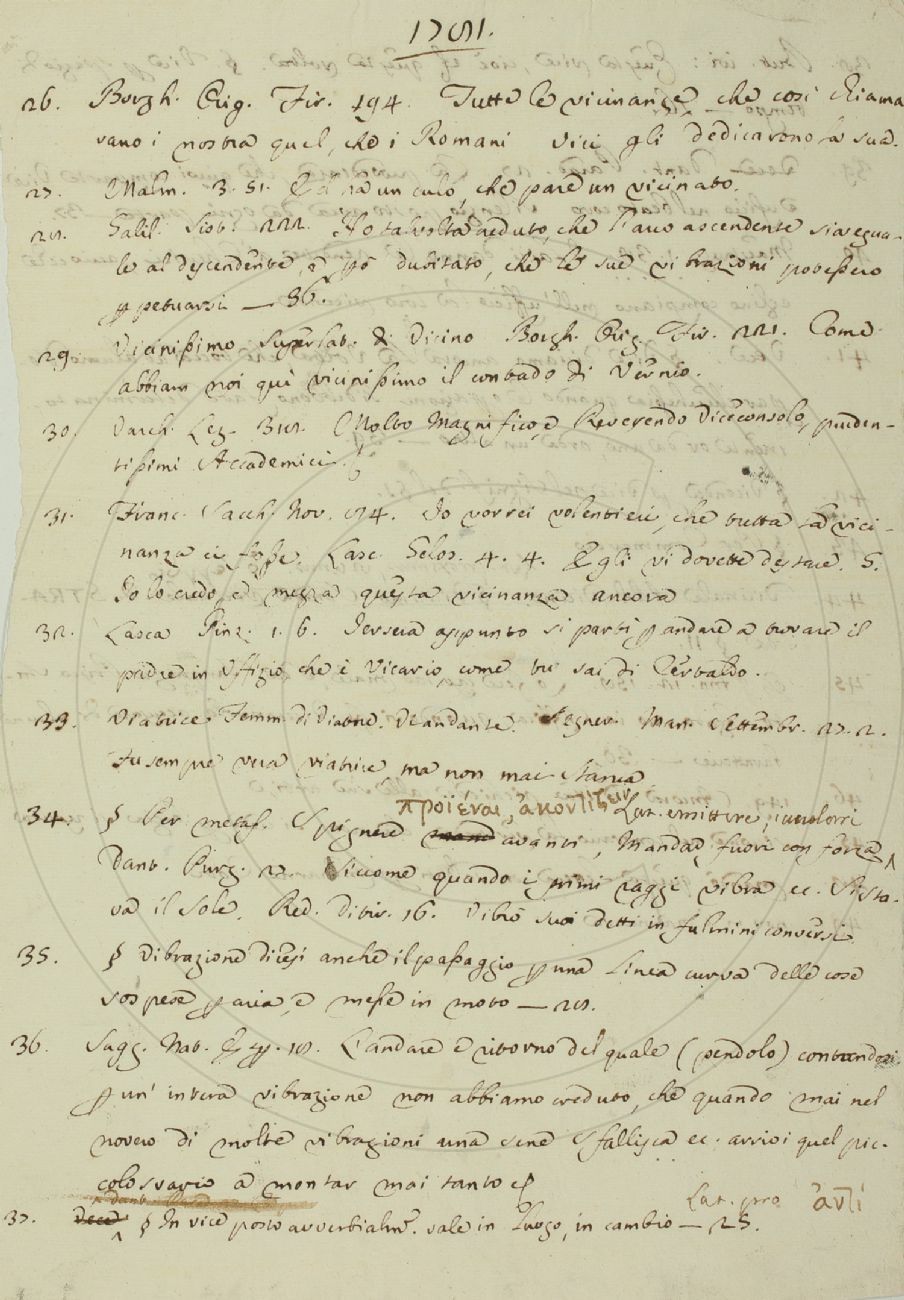 1781.
26. Borgh. Orig. Fir. 194. Tutte le vicinanze che così chiama
vano i nostra quel, che i Romani vici gli dedicarono la sua.
27. Malm. 3. 51. un culo, che pare un vicinato.
28. Galil. 222. Ho talvolta veduto, che l'arco ascendente sia egua-
le al descendente, dubitato, che le sue vibrazioni potessero
ꝑpetuarsi — 36.
29. Vicinissimo Superlat. di Vicino Borgh. Orig. Fir. 221. Come
abbiam noi quì vicinissimo il contado di Vernio.
30. Varch. Lez. Molto Magnifico, e Reverendo Viceconsolo, pruden-
tissimi Accademici.
31. Franc. Sacch. Nov. 84. Io vorrei volentieri, che tutta la vici-
nanza ci fosse. Lasc. Gelos. 4. 4. Egli vi dovette destare. S.
Io lo credo, e mezza questa vicinanza ancora
32. Lasca Pinz. 1. 6. Iersera appunto si partì ꝑ andare a trovare il
padre in Uffizio, che è Vicario, come tu sai, di Certaldo.
33. Viatrice Femm. di Viatore. Viandante. Segner. Mann. Settembr. 27. 2.
Fu sempre vera viatrice, ma non mai stanca
προϊέναι, ἀκοντίζειν Lat. emittere, jaculari
34. § Per metaf. Spignere avanti, Mandar fuori con forza
Dant. Purg. 27. Siccome quando i primi raggi vibra ec. Si sta-
va il Sole. Red. Ditir. 16. Vibrò suoi detti in fulmini conversi
35. § Vibrazione dicesi anche il passaggio ꝑ una Linea curva delle cose
sospese ꝑ aria, e messe in moto — 28.
36. Sagg. Nat. Esp. 18. L'andare e ritorno del quale (pendolo) contandosi
ꝑ un' intera vibrazione non abbiamo creduto, che quando mai nel
novero di molte vibrazioni una sene sfallisca ec. arrivi quel pic-
colo svario a montar mai tanto
Lat. pro ἀντί
37. § In vice posto avverbialm. vale in Luogo, in cambio — 25.